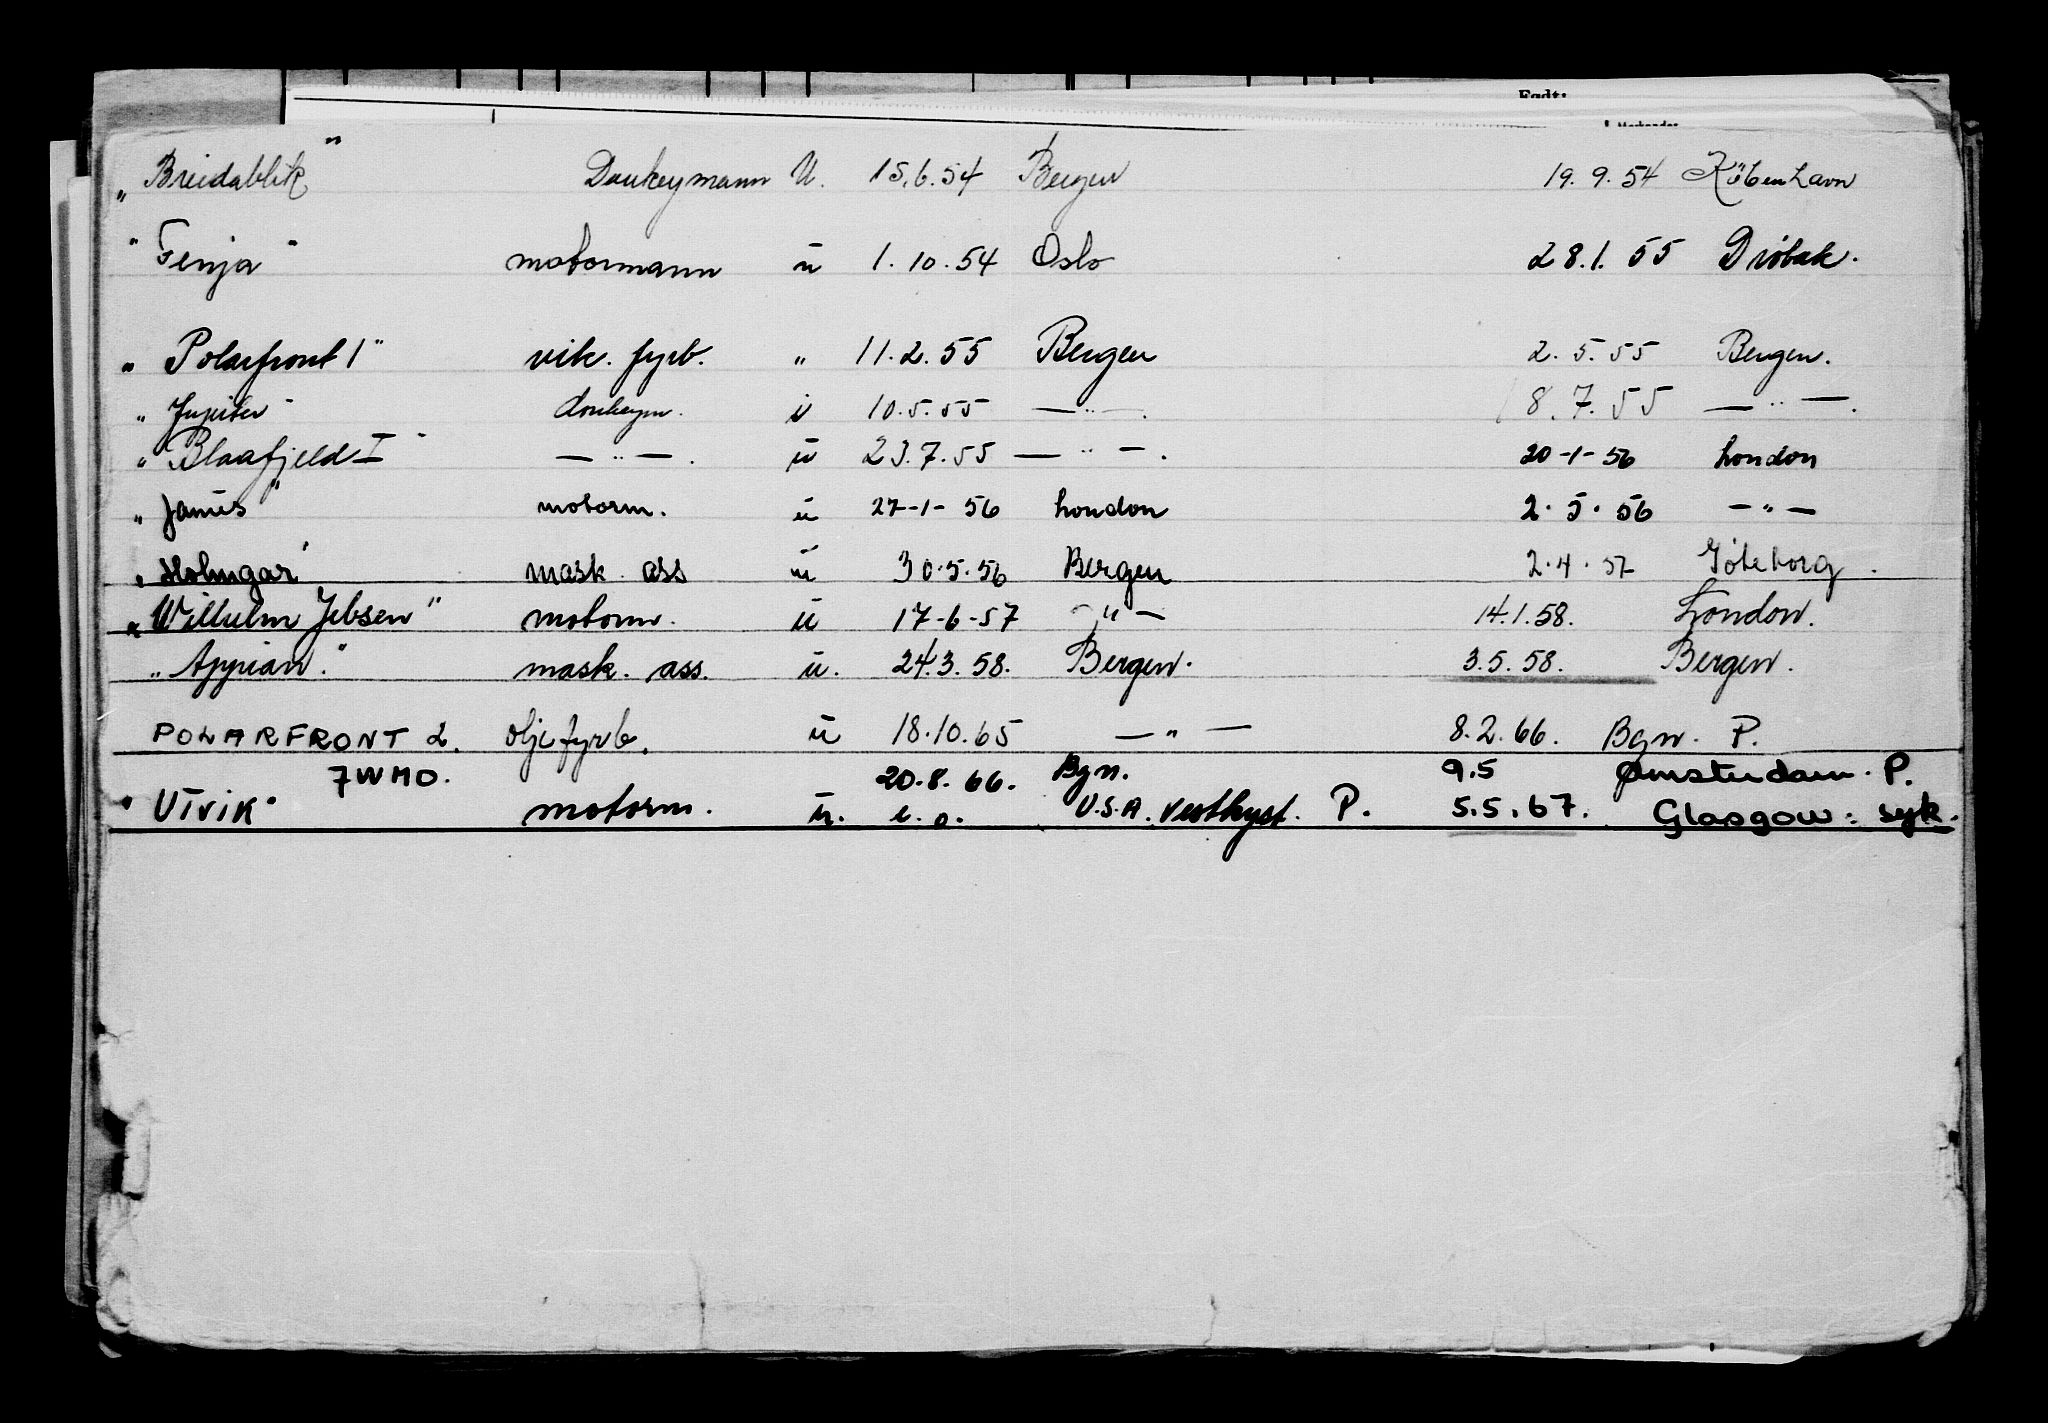 Født:
„Breidablik" Donkeymann U. 15.6.54 Bergen 19.9.54 Köbenhavn
"Fenja" motormann u 1.10.54 Oslo 28.1.55 Dröbak.
„Polarfront 1" vik. fyrb. " 11.2.55 Bergen 2.5.55 Bergen.
„Jupiter" donkeym. u 10.5.55 — " — . 8.7.55 — " — .
„Blaafjeld I" — " — . u 23.7.55 — " — . 20-1-56 London
„Janus" motorm. u 27-1-56 London 2.5.56 — " —
„Holmgar" mask. ass u 30.5.56 Bergen 2.4.57 Göteborg.
„Wilhelm Jebsen" motorm. u 17-6-57 — " — 14.1.58. London.
„Appian." mask. ass. u. 24.3.58. Bergen. 3.5.58. Bergen.
POLARFRONT 2. oljefyrb. u 18.10.65 — " — 8.2.66. Bgn. P.
7WMO. 20.8.66. Bgn. 9.5 Amsterdam. P.
"UTVIK" motorm. u. e.o. U.S.A. vestkyst. P. 5.5.67. Glasgow: syk.